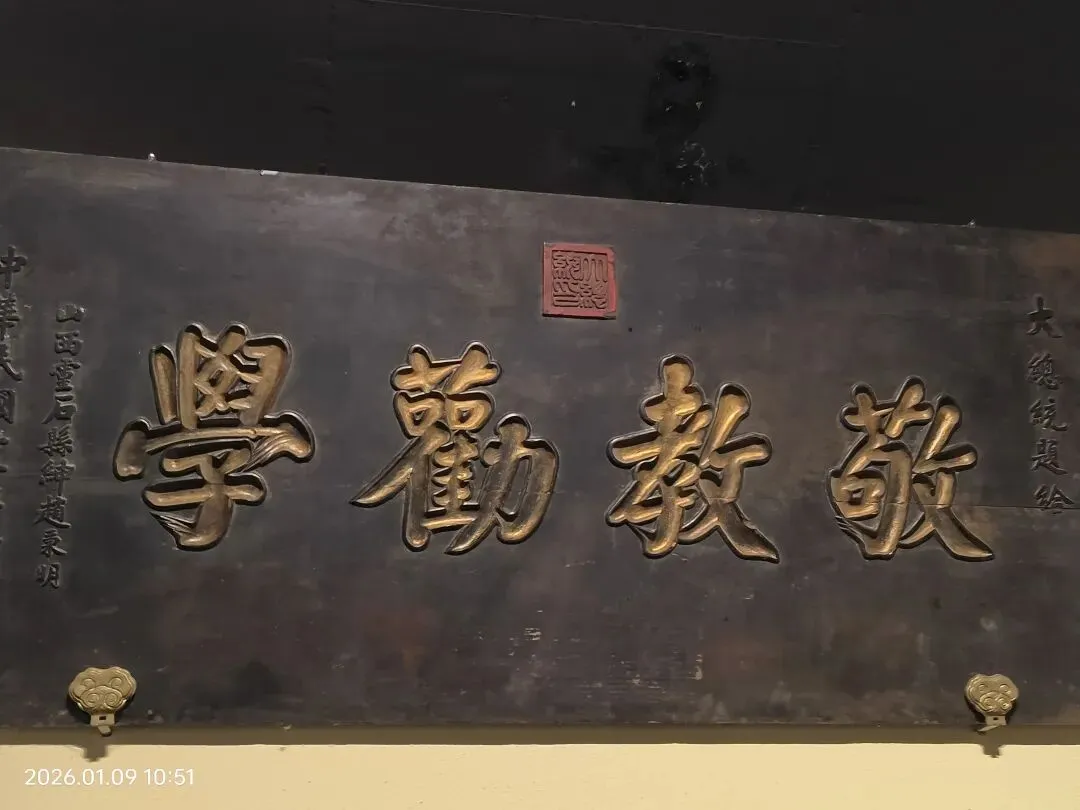 大總統題給
大總統印
敬教勸學
山西靈石縣紳趙秉明
中華民國
2026.01.09 10:51